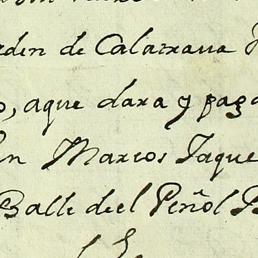 rden de Calatrava
o, aque dara y paga
n Marcos Iaque
Balle deel Peñol